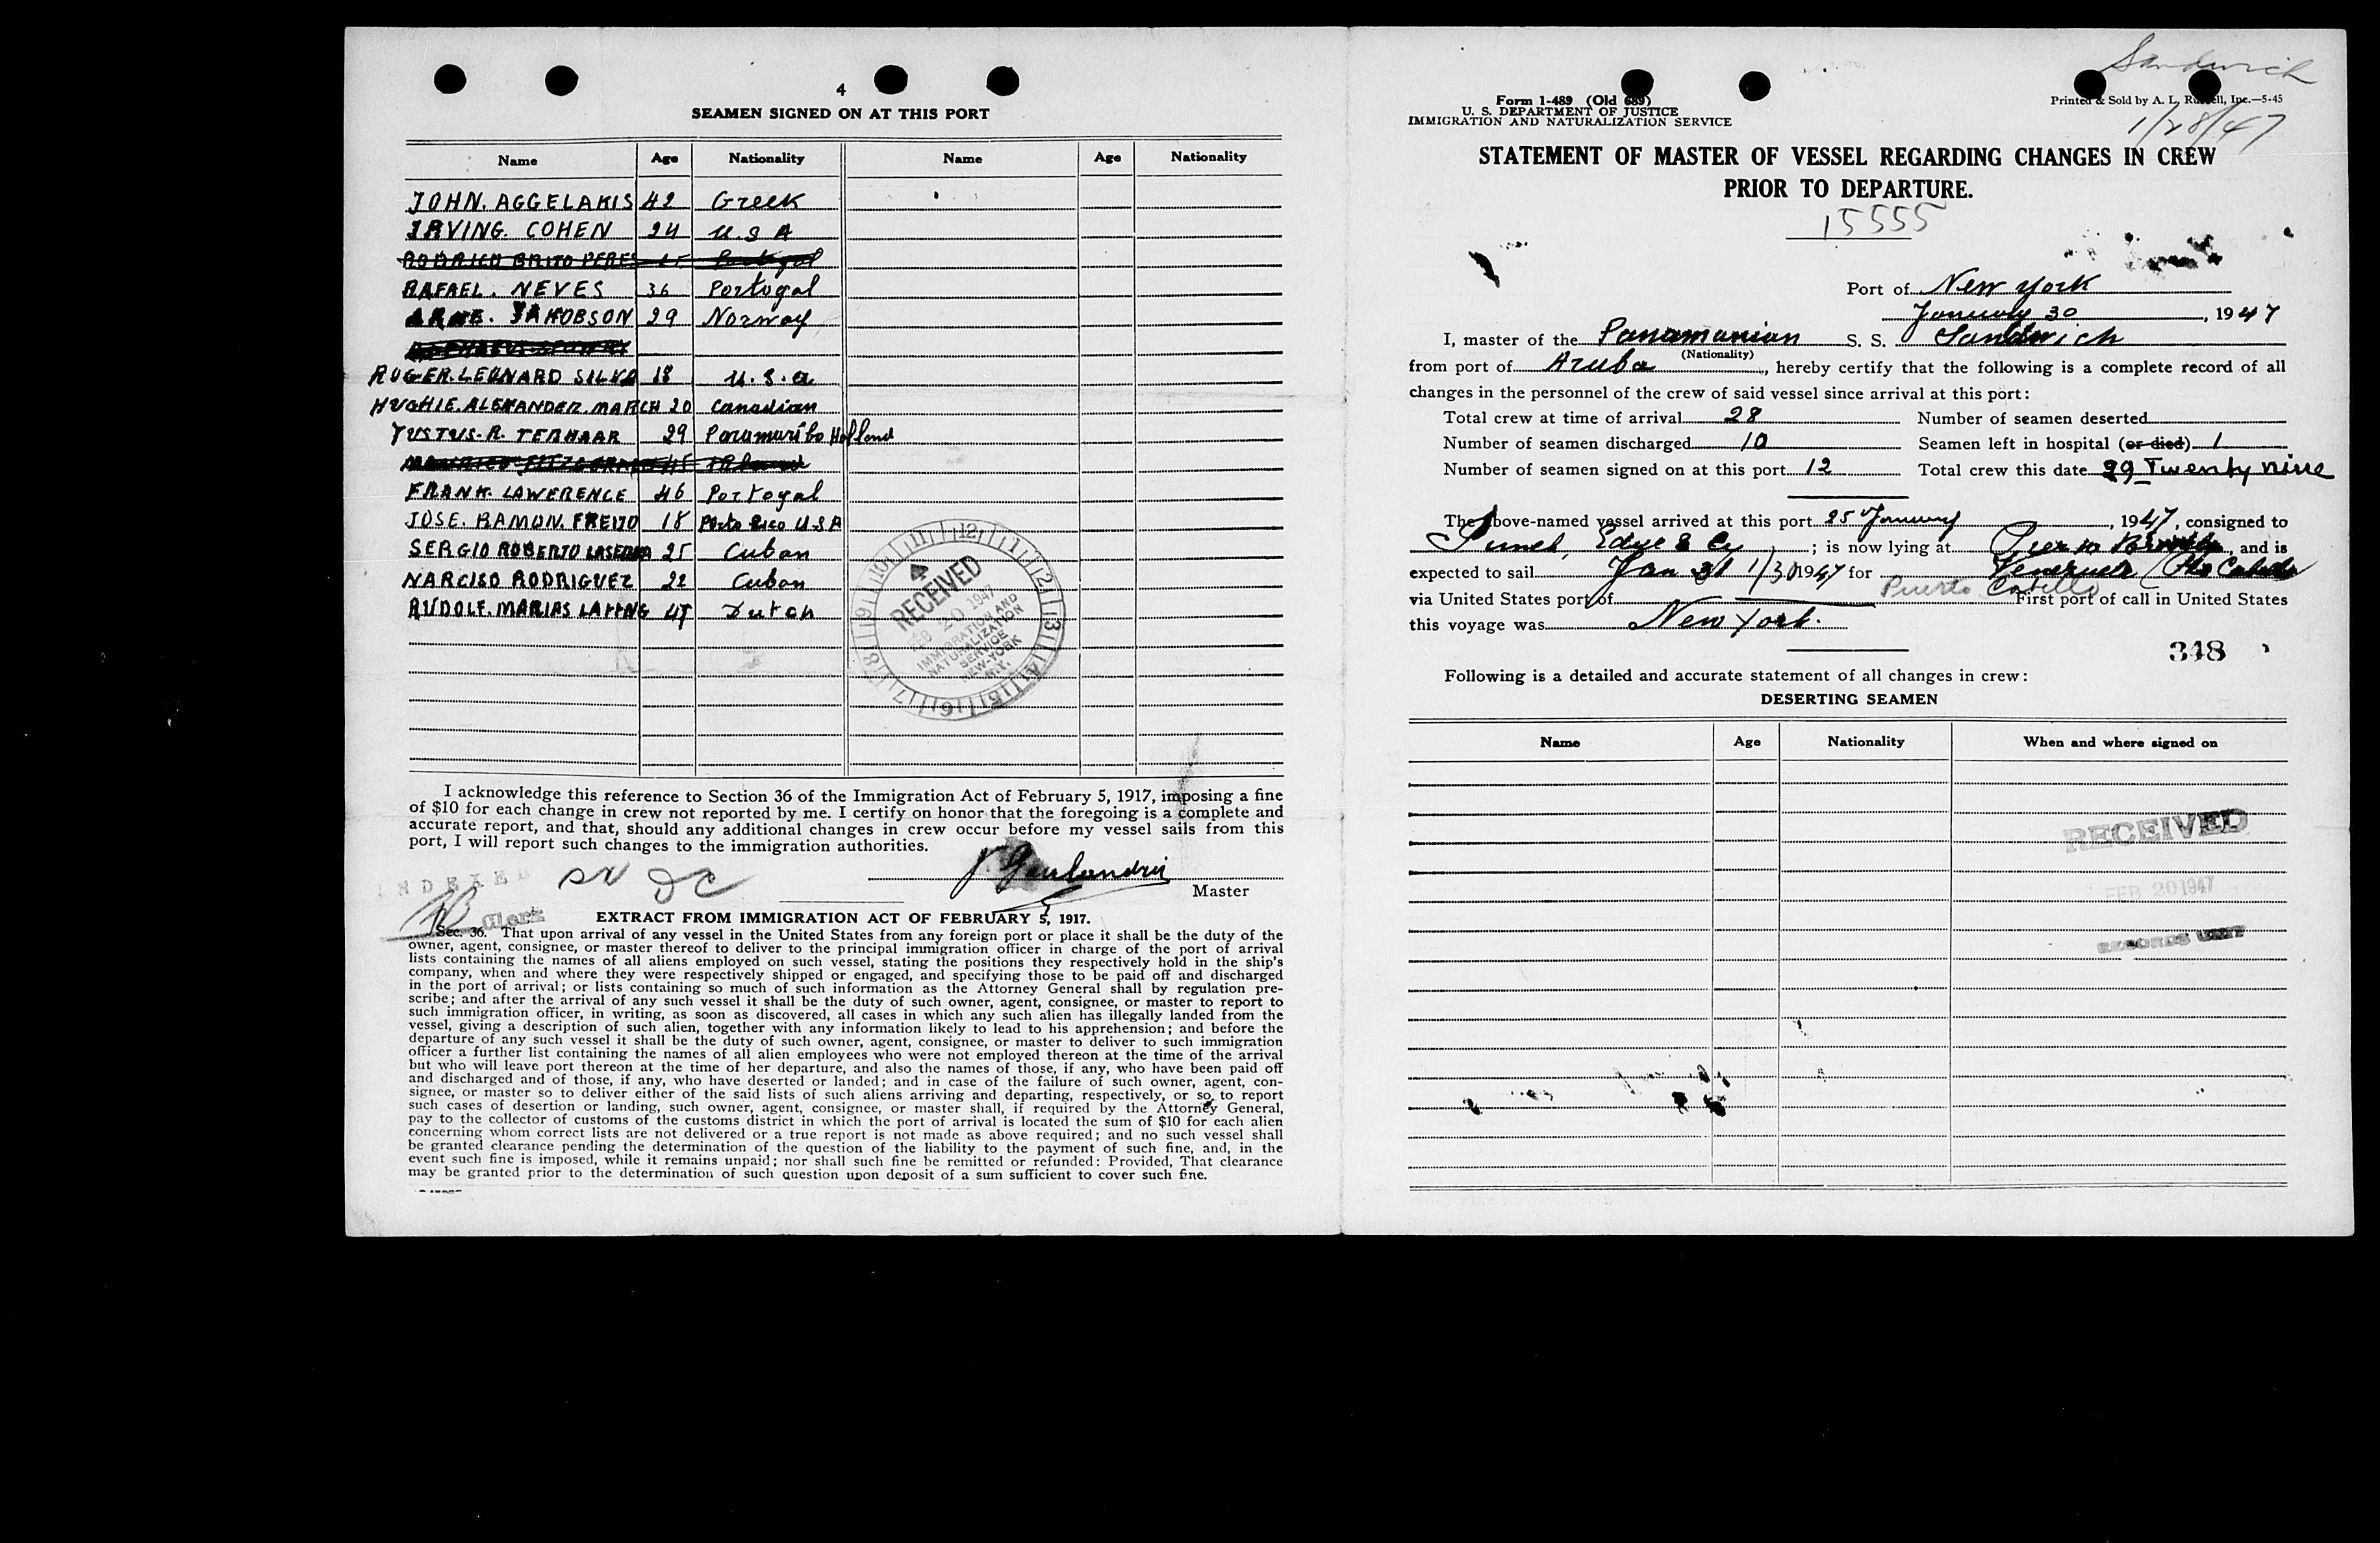 4
SEAMEN SIGNED ON AT THIS PORT
Name Age Nationality Name Age Nationality
JOHN. AGGELAKIS 42 Greek
IRVING. COHEN 24 U.S A
RODRIGO BRITO PERES Portugal
RAFAEL. NEVES 36 Portogal
ARNE. JAKOBSON 29 Norway
ROGER. LEONARD SILVA 18 U.S.a
HUGHIE. ALEXANDER. MARCH 20 Canadian
JUSTUS. R. TERHAAR 29 Paramaribo Holland
FRANK. LAWERENCE 46 Portogal
JOSE. RAMON. FREITO 18 Porto Rico U-S A
SERGIO ROBERTO 25 Cuban
NARCISO RODRIGUEZ 22 Cuban
RUDOLF. MARIAS 47 Dutch
RECEIVED
FEB 20 1947
IMMIGRATION AND
NATURALIZATION
SERVICE
NEW-YORK
N.Y.
I acknowledge this reference to Section 36 of the Immigration Act of February 5, 1917, imposing a fine
of $10 for each change in crew not reported by me. I certify on honor that the foregoing is a complete and
accurate report, and that, should any additional changes in crew occur before my vessel sails from this
port, I will report such changes to the immigration authorities.
INDEXED
Master
Clerk
EXTRACT FROM IMMIGRATION ACT OF FEBRUARY 5, 1917.
Sec. 36. That upon arrival of any vessel in the United States from any foreign port or place it shall be the duty of the
owner, agent, consignee, or master thereof to deliver to the principal immigration officer in charge of the port of arrival
lists containing the names of all aliens employed on such vessel, stating the positions they respectively hold in the ship's
company, when and where they were respectively shipped or engaged, and specifying those to be paid off and discharged
in the port of arrival; or lists containing so much of such information as the Attorney General shall by regulation pre-
scribe; and after the arrival of any such vessel it shall be the duty of such owner, agent, consignee, or master to report to
such immigration officer, in writing, as soon as discovered, all cases in which any such alien has illegally landed from the
vessel, giving a description of such alien, together with any information likely to lead to his apprehension; and before the
departure of any such vessel it shall be the duty of such owner, agent, consignee, or master to deliver to such immigration
officer a further list containing the names of all alien employees who were not employed thereon at the time of the arrival
but who will leave port thereon at the time of her departure, and also the names of those, if any, who have been paid off
and discharged and of those, if any, who have deserted or landed; and in case of the failure of such owner, agent, con-
signee, or master so to deliver either of the said lists of such aliens arriving and departing, respectively, or so to report
such cases of desertion or landing, such owner, agent, consignee, or master shall, if required by the Attorney General,
pay to the collector of customs of the customs district in which the port of arrival is located the sum of $10 for each alien
concerning whom correct lists are not delivered or a true report is not made as above required; and no such vessel shall
be granted clearance pending the determination of the question of the liability to the payment of such fine, and, in the
event such fine is imposed, while it remains unpaid; nor shall such fine be remitted or refunded: Provided, That clearance
may be granted prior to the determination of such question upon deposit of a sum sufficient to cover such fine.
Sandwich
Form I-489 (Old 689)
U. S. DEPARTMENT OF JUSTICE
IMMIGRATION AND NATURALIZATION SERVICE
Printed & Sold by A. L. Russell, Inc.—5-45
1/28/47
STATEMENT OF MASTER OF VESSEL REGARDING CHANGES IN CREW
PRIOR TO DEPARTURE.
15555
Port of New York
January 30, 1947
I, master of the Panamanian S. S. Sandwich
(Nationality)
from port of Aruba, hereby certify that the following is a complete record of all
changes in the personnel of the crew of said vessel since arrival at this port:
Total crew at time of arrival 28 Number of seamen deserted
Number of seamen discharged 10 Seamen left in hospital (or died) 1
Number of seamen signed on at this port 12 Total crew this date 29 Twenty nine
The above-named vessel arrived at this port 25 January, 1947, consigned to
Funch, Edye & Cy; is now lying at Pier 10, and is
expected to sail Jan 31 1/30 1947 for Venezuela (Pto Cabello
via United States port of Puerto Cabello First port of call in United States
this voyage was New York.
348
Following is a detailed and accurate statement of all changes in crew:
DESERTING SEAMEN
Name Age Nationality When and where signed on
RECEIVED
FEB 20 1947
RECORDS UNIT